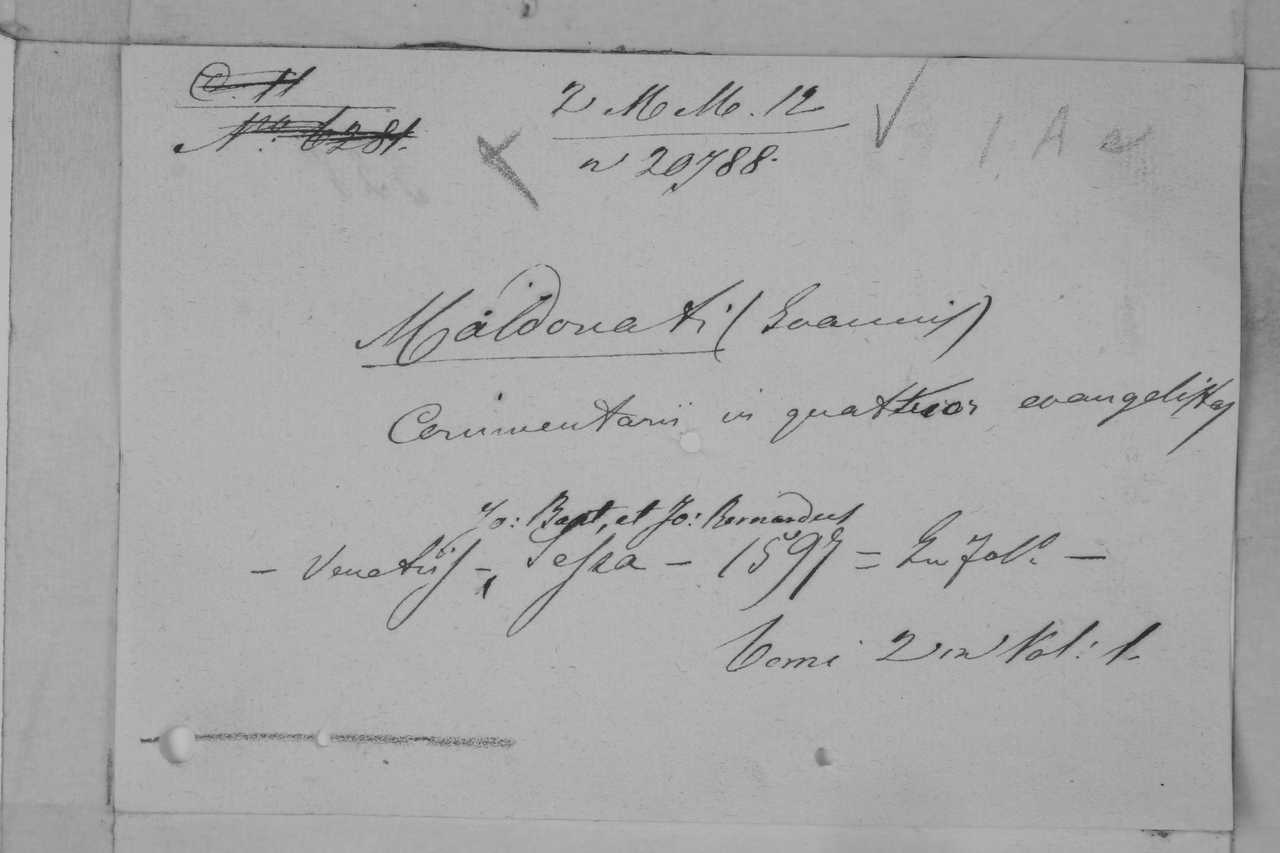 C. 11
N.º 6281.
2 M M. 12
n 20788.
1 A
Maldonati (Ioannis)
Commentarii in quattuor evangelistas
Jo: Bapt, et Jo: Bernardus
– Venetiis –, Sessa – 1597 = In fol.º –
Tomi 2 in Vol: 1.